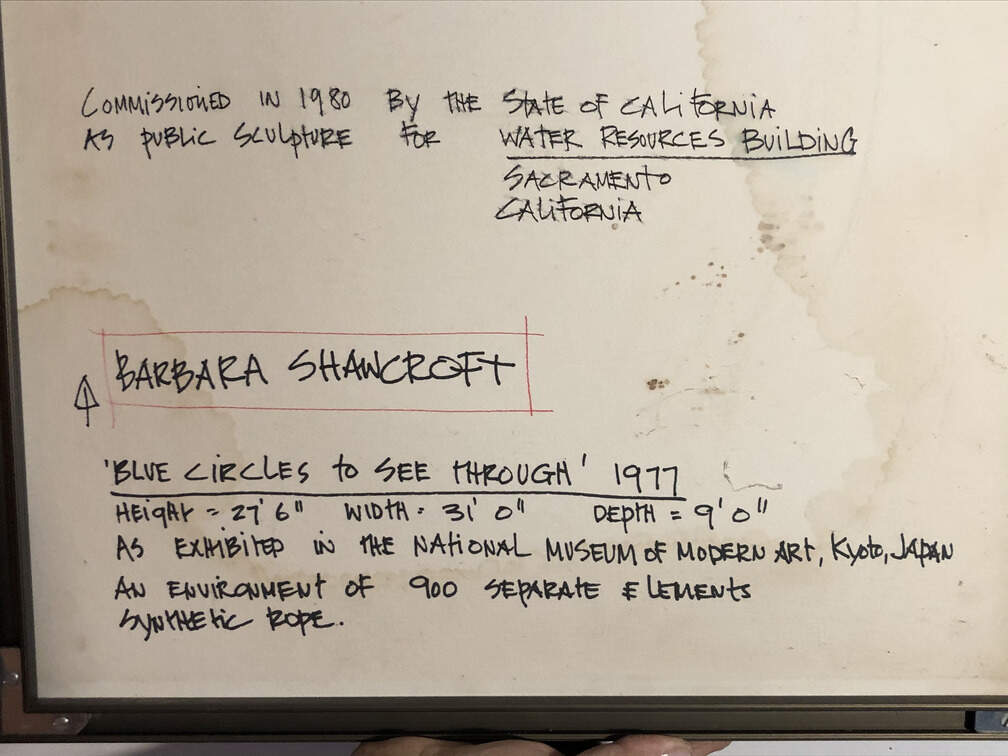 COMMISSIONED IN 1980 BY THE STATE OF CALIFORNIA
AS PUBLIC SCULPTURE FOR WATER RESOURCES BUILDING
SACRAMENTO
CALIFORNIA
BARBARA SHAWCROFT
'BLUE CIRCLES TO SEE THROUGH' 1977
HEIGHT = 27' 6" WIDTH = 31' 0" DEPTH = 9' 0"
AS EXHIBITED IN THE NATIONAL MUSEUM OF MODERN ART, KYOTO, JAPAN
AN ENVIRONMENT OF 900 SEPARATE ELEMENTS
SYNTHETIC ROPE.